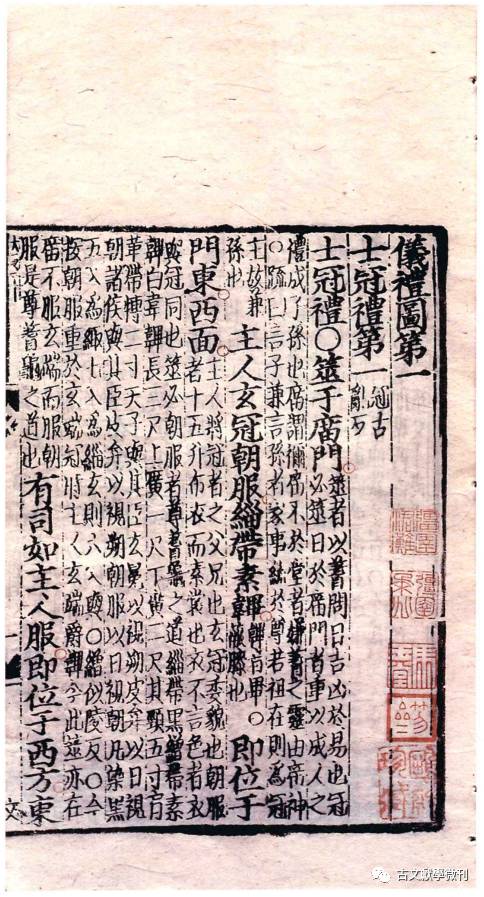 儀禮圖第一
士冠禮第一冠古亂切
士冠禮○筮于廟門筮者以蓍問日吉凶於易也冠
必筮日於廟門者重以成人之
禮成子孫也廟謂禰廟不於堂者嫌蓍之靈由廟神
○疏曰言子兼言孫者家事統於尊者若祖在則為冠
主故兼
孫也
主人玄冠朝服緇帶素韠韠音畢○即位于
門東西面主人將冠者之父兄也玄冠委貌也朝服
者十五升布衣而素裳也衣不言色者衣
與冠同也筮必朝服者尊蓍龜之道緇帶黑繒帶素
韠白韋韠長三尺上廣一尺下廣二尺其頸五寸肩
革帶博二寸天子與其臣玄冕以視朔皮弁以日視
朝諸侯與其臣皮弁以視朔朝服以日視朝凡染黑
五入為緅七入為緇玄則六入與○繒似陵反○今
按朝服重於玄端冠時主人玄端爵韠今此筮亦在
廟不服玄端而服朝
服是尊蓍龜之道也有司如主人服即位于西方東
古文獻學微刊